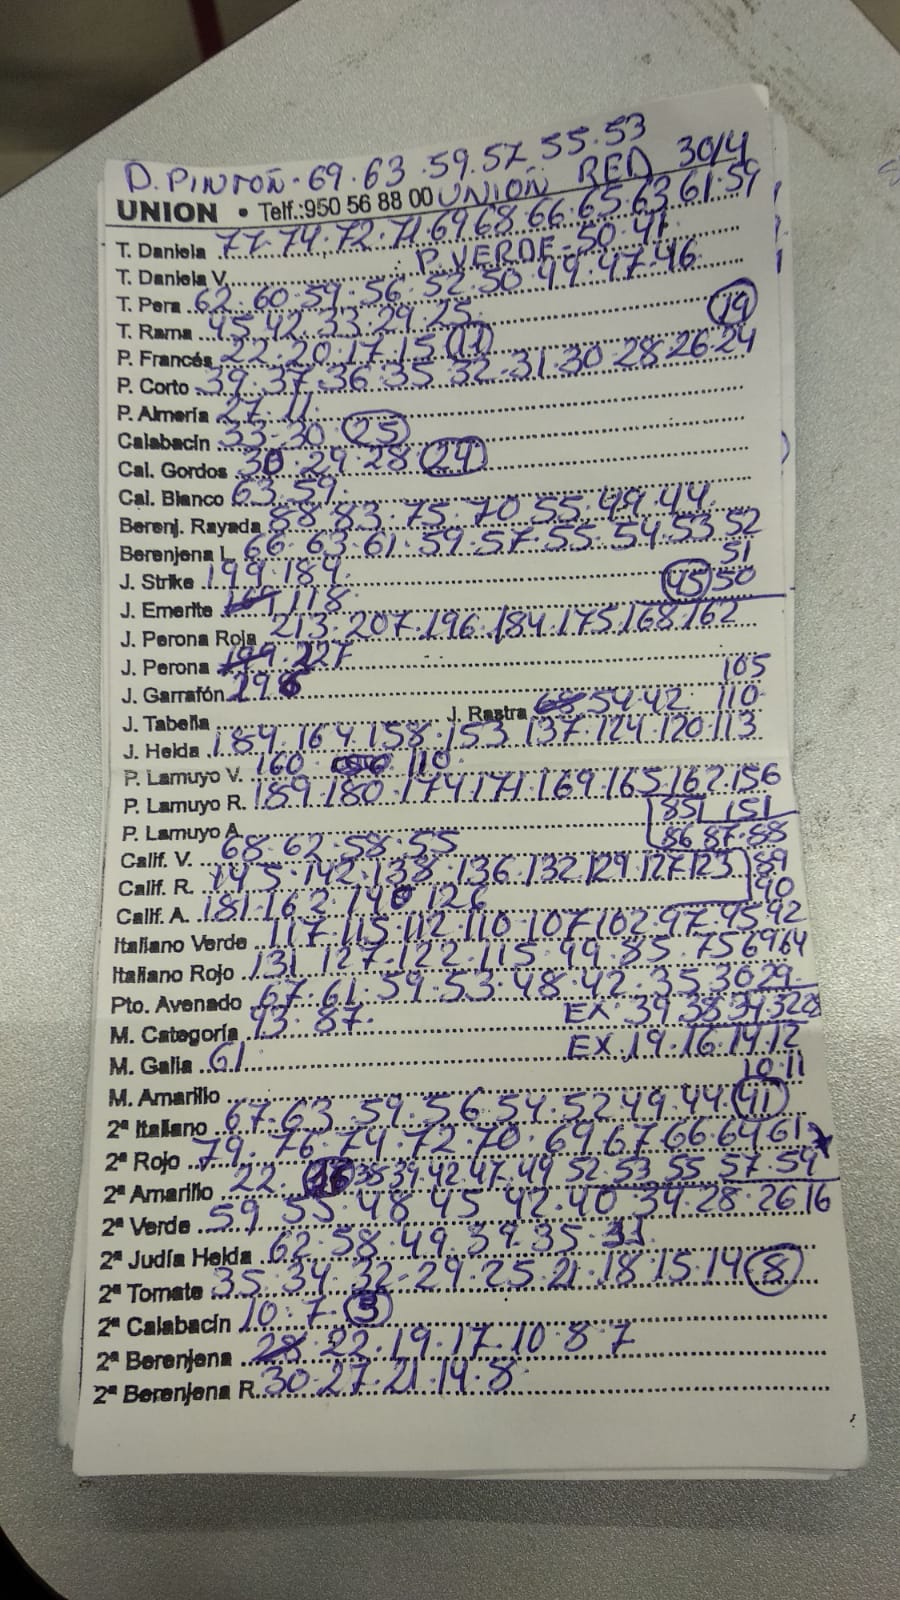 D. PINTOÑ · 69 · 63 · 59 · 57 · 55 · 53
UNION • Telf.:950 56 88 00 UNIOÑ RED 30/4
T. Daniela 77 · 74 · 72 · 71 69 68 · 66 · 65 · 63 61 · 59
T. Daniela V. P. VERDE - 50 · 41
T. Pera 62 · 60 · 59 · 56 · 52 · 50 · 49 · 47 · 46
T. Rama 45 42 · 33 · 29 · 25
P. Francés 22 · 20 · 17 · 15 11 19
P. Corto 39 · 37 · 36 · 35 32 · 31 · 30 · 28 · 26 · 24
P. Almería 27 · 11
Calabacín 33 - 30 25
Cal. Gordos 30 · 29 · 28 24
Cal. Blanco 63 59
Berenj. Rayada 88 83 · 75 · 70 55 · 49 · 44
Berenjena L. 66 · 63 · 61 · 59 · 57 · 55 · 54 · 53 52
51
J. Strike 199 · 184
45 50
J. Emerite 118
J. Perona Roja 213 · 207 · 196 · 184 · 175 168 · 162
J. Perona 199 · 227
J. Garrafón 298
105
J. Tabella J. Rastra 68 54 · 42 110
J. Helda 184 · 164 · 158 · 153 137 · 124 · 120 · 113
P. Lamuyo V. 160 110
P. Lamuyo R. 189 · 180 · 174 171 · 169 · 165 · 162 · 156
85 151
P. Lamuyo A. 86 87 · 88
Calif. V. 68 · 62 · 58 · 55
Calif. R. 145 · 142 · 138 · 136 · 132 129 · 127 123 89
90
Calif. A. 181 · 162 · 140 126
Italiano Verde 117 · 115 · 112 · 110 · 107 102 · 97 · 95 · 92
Italiano Rojo 131 127 · 122 · 115 · 99 · 85 · 75 69 64
Pto. Avenado 67 · 61 · 59 · 53 · 48 · 42 · 35 30 29
M. Categoría 93 · 87 EX · 39 38 34 32 28
M. Galia 61 EX . 19 · 16 · 14 · 12
10 · 11
M. Amarillo
2ª Italiano 67 · 63 · 59 · 56 54 · 52 49 · 44 41
2ª Rojo 79 · 76 · 74 · 72 · 70 · 69 67 66 64 61
2ª Amarillo 22 38 39 42 47 49 52 53 55 57 · 59
2ª Verde 59 55 · 48 45 42 · 40 34 · 28 · 26 16
2ª Judía Helda 62 · 58 · 49 · 39 · 35 · 31
2ª Tomate 35 · 34 · 32 - 29 · 25 · 21 · 18 · 15 · 14 8
2ª Calabacín 10 · 7 · 5
2ª Berenjena 28 · 22 · 19 · 17 · 10 · 8 · 7
2ª Berenjena R. 30 · 27 · 21 · 14 · 8